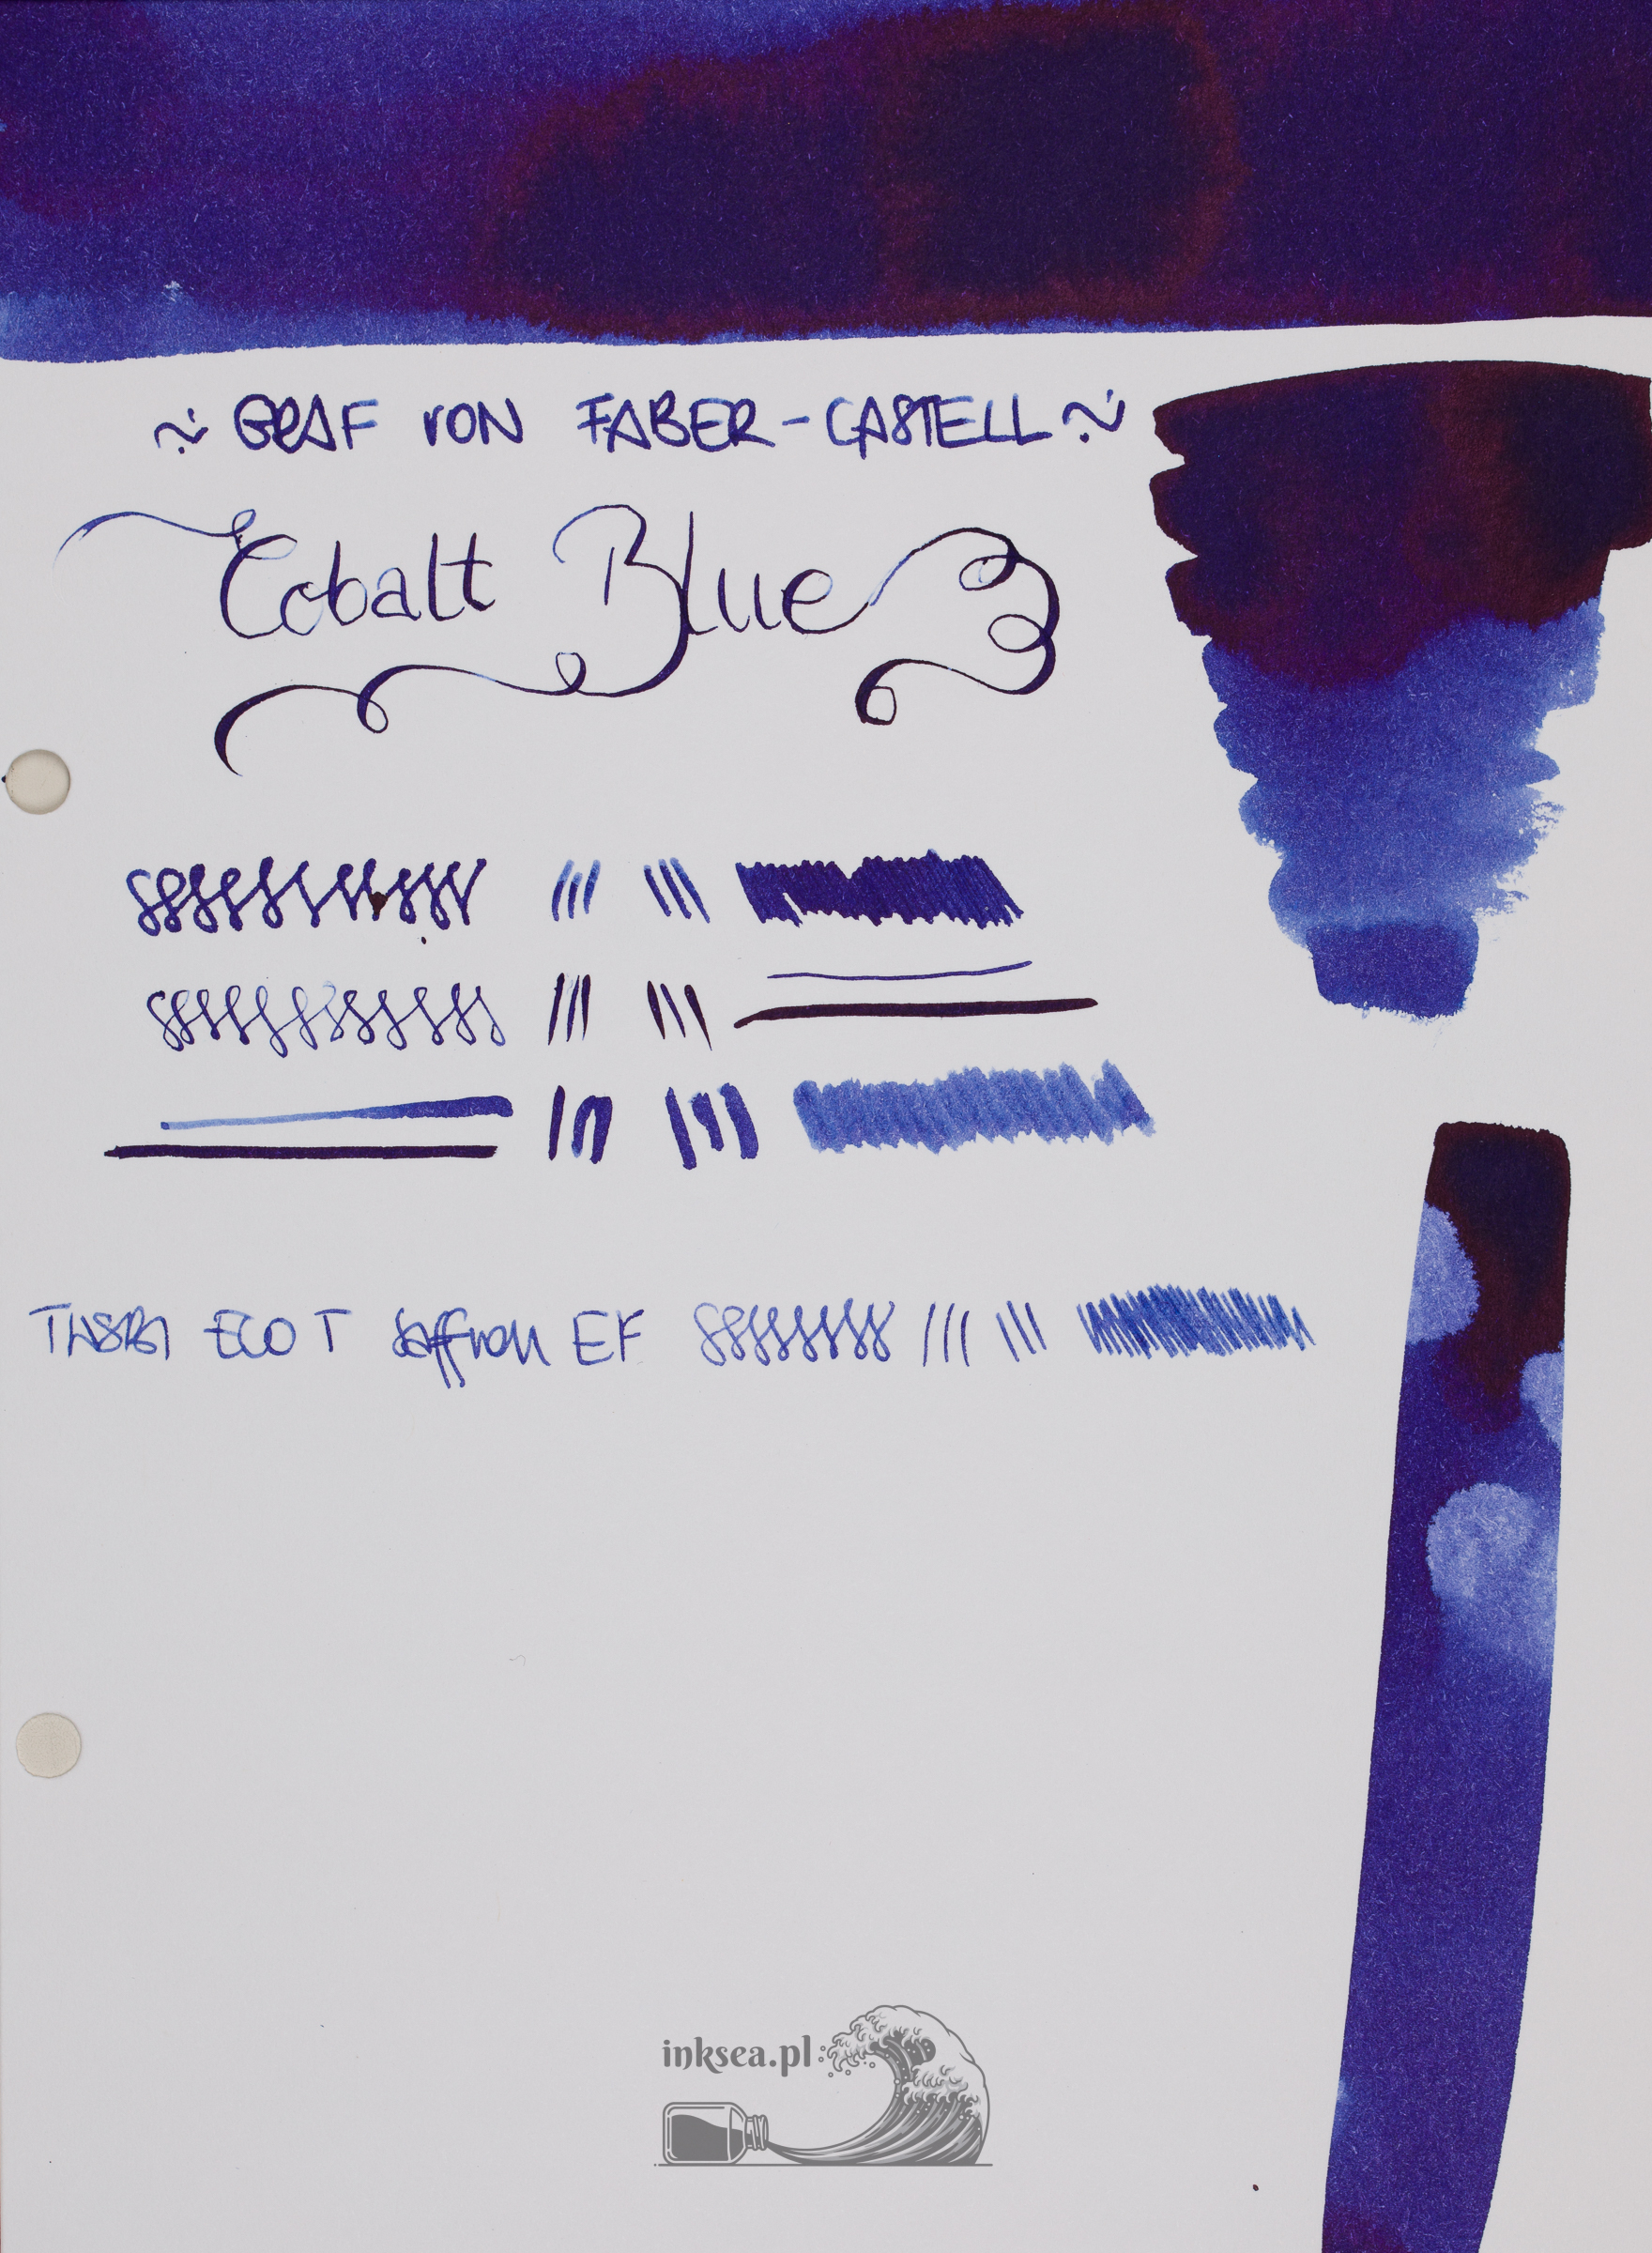 ~ GRAF VON FABER-CASTELL ~
Cobalt Blue
TWSBI ECO T Saffron EF
inksea.pl